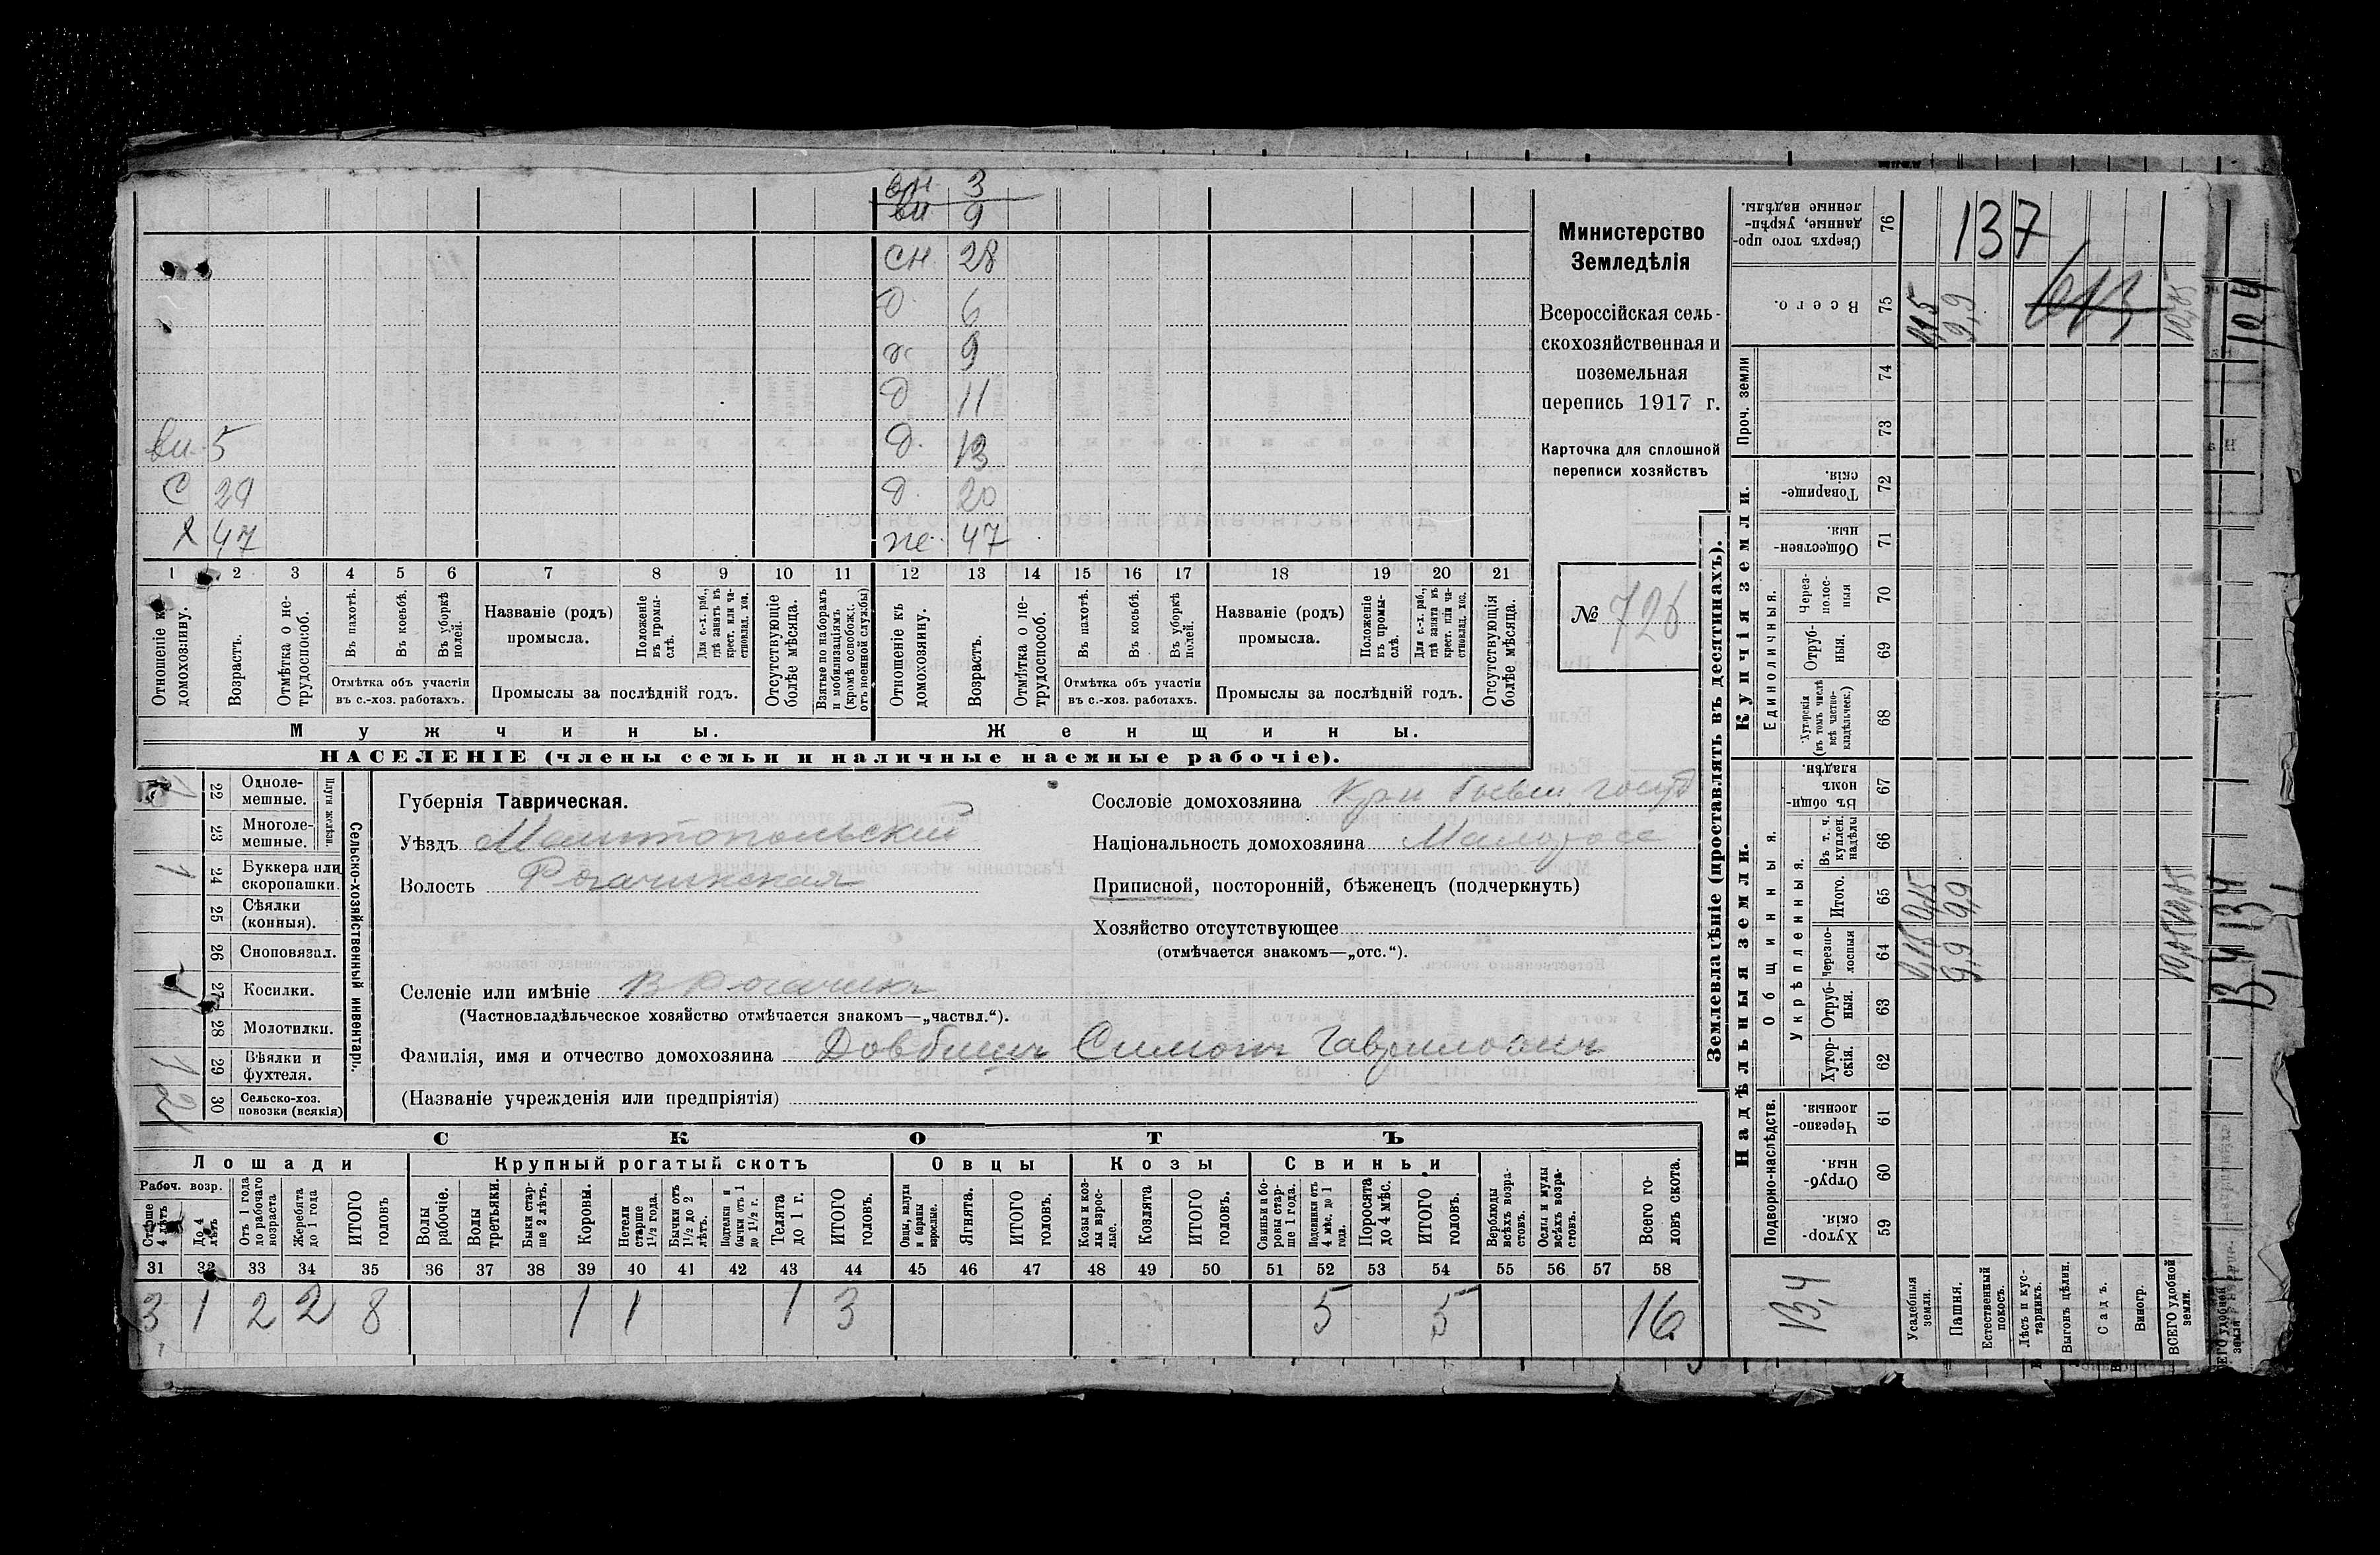 вн. 3
вн 9
сн. 28
д. 6
ж 9
д 11
вн. 5 д. 13
с 29 д. 20
х 47 же. 47
1 2 3 4 5 6 7 8 9 10 11 12 13 14 15 16 17 18 19 20 21
Отношеніе къ домохозяину.
Возрастъ.
Отмѣтка о нетрудоспособ.
Въ пахотѣ.
Въ косьбѣ.
Въ уборкѣ полей.
Отмѣтка объ участіи въ с.-хоз. работахъ.
Названіе (родъ) промысла.
Положеніе въ промыслѣ.
Для с.-х. раб., гдѣ занятъ въ крест. или частновлад. хоз.
Промыслы за послѣдній годъ.
Отсутствующіе болѣе мѣсяца.
Взятые по наборамъ и мобилизаціямъ (кромѣ освобожд. отъ военной службы)
Отношеніе къ домохозяину.
Возрастъ.
Отмѣтка о нетрудоспособ.
Въ пахотѣ.
Въ косьбѣ.
Въ уборкѣ полей.
Отмѣтка объ участіи въ с.-хоз. работахъ.
Названіе (родъ) промысла.
Положеніе въ промыслѣ.
Для с.-х. раб., гдѣ занята въ крест. или частновлад. хоз.
Промыслы за послѣдній годъ.
Отсутствующія болѣе мѣсяца.
Мужчины. Женщины.
НАСЕЛЕНІЕ (члены семьи и наличные наемные рабочіе).
Министерство
Земледѣлія
Всероссійская сель-
скохозяйственная и
поземельная
перепись 1917 г.
Карточка для сплошной
переписи хозяйствъ
№ 726
Сельско-хозяйственный инвентарь.
Плуги желѣзн.
22 Одноле-
мешные.
23 Многоле-
мешные.
1 24 Буккера или
скоропашки.
25 Сѣялки
(конныя).
26 Сноповязал.
27 Косилки.
28 Молотилки.
1 29 Вѣялки и
фухтеля.
2 30 Сельско-хоз.
повозки (всякія)
Губернія Таврическая.
Уѣздъ Мелитопольский
Волость Рогачикская
Селеніе или имѣніе В Рогачикъ
(Частновладѣльческое хозяйство отмѣчается знакомъ—„частвл.“).
Фамилія, имя и отчество домохозяина Довбишъ Симонъ Гавриловичъ
(Названіе учрежденія или предпріятія)
Сословіе домохозяина Кр-н бывш. госуд
Національность домохозяина Малоросс
Приписной, посторонній, бѣженецъ (подчеркнуть)
Хозяйство отсутствующее
(отмѣчается знакомъ—„отс.“).
СКОТЪ
Лошади Крупный рогатый скотъ Овцы Козы Свиньи
Рабоч. возр.
Старше 4 лѣтъ
До 4 лѣтъ
Отъ 1 года до рабочаго возраста
Жеребята до 1 года
ИТОГО головъ
Волы рабочіе.
Волы третьяки.
Быки старше 2 лѣтъ.
Коровы.
Нетели старше 1½ года.
Бычки отъ 1½ до 2 лѣтъ.
Подтелки и бычки отъ 1 до 1½ г.
Телята до 1 г.
ИТОГО головъ.
Овцы, валухи и бараны взрослые.
Ягнята.
ИТОГО головъ.
Козы и козлы взрослые.
Козлята
ИТОГО головъ.
Свиньи и боровы старше 1 года.
Подсвинки отъ 4 мѣс. до 1 года.
Поросята до 4 мѣс.
ИТОГО головъ.
Верблюды всѣхъ возрастовъ.
Ослы и мулы всѣхъ возрастовъ.
Всего головъ скота.
31 32 33 34 35 36 37 38 39 40 41 42 43 44 45 46 47 48 49 50 51 52 53 54 55 56 57 58
3 1 2 2 8 1 1 1 3 5 5 16
Землевладѣніе (проставлять въ десятинахъ).
Надѣльныя земли. Купчія земли. Проч. земли
Подворно-наслѣдств.
Общинныя.
Укрѣпленныя.
Единоличныя.
Сверхъ того проданные, укрѣпленные надѣлы. 76
Всего. 75
74
73
Товарищескія. 72
Общественныя. 71
Черезполосныя 70
Отрубныя. 69
Хуторскія (въ томъ числѣ всѣ частновладѣльческ.) 68
Въ общинномъ владѣн. 67
Въ т. ч. куплен. надѣлы 66
Итого. 65
Черезполосныя 64
Отрубныя. 63
Хуторскія. 62
Черезполосныя. 61
Отрубныя. 60
Хуторскія. 59
Усадебныя земли.
Пашня.
Естественный покосъ.
Лѣсъ и кустарникъ.
Выгонъ цѣлин.
Садъ.
Виногр.
ВСЕГО удобной земли.
137
613
9,9
9,9
9,9
13,4
10,4
13,4
13,4